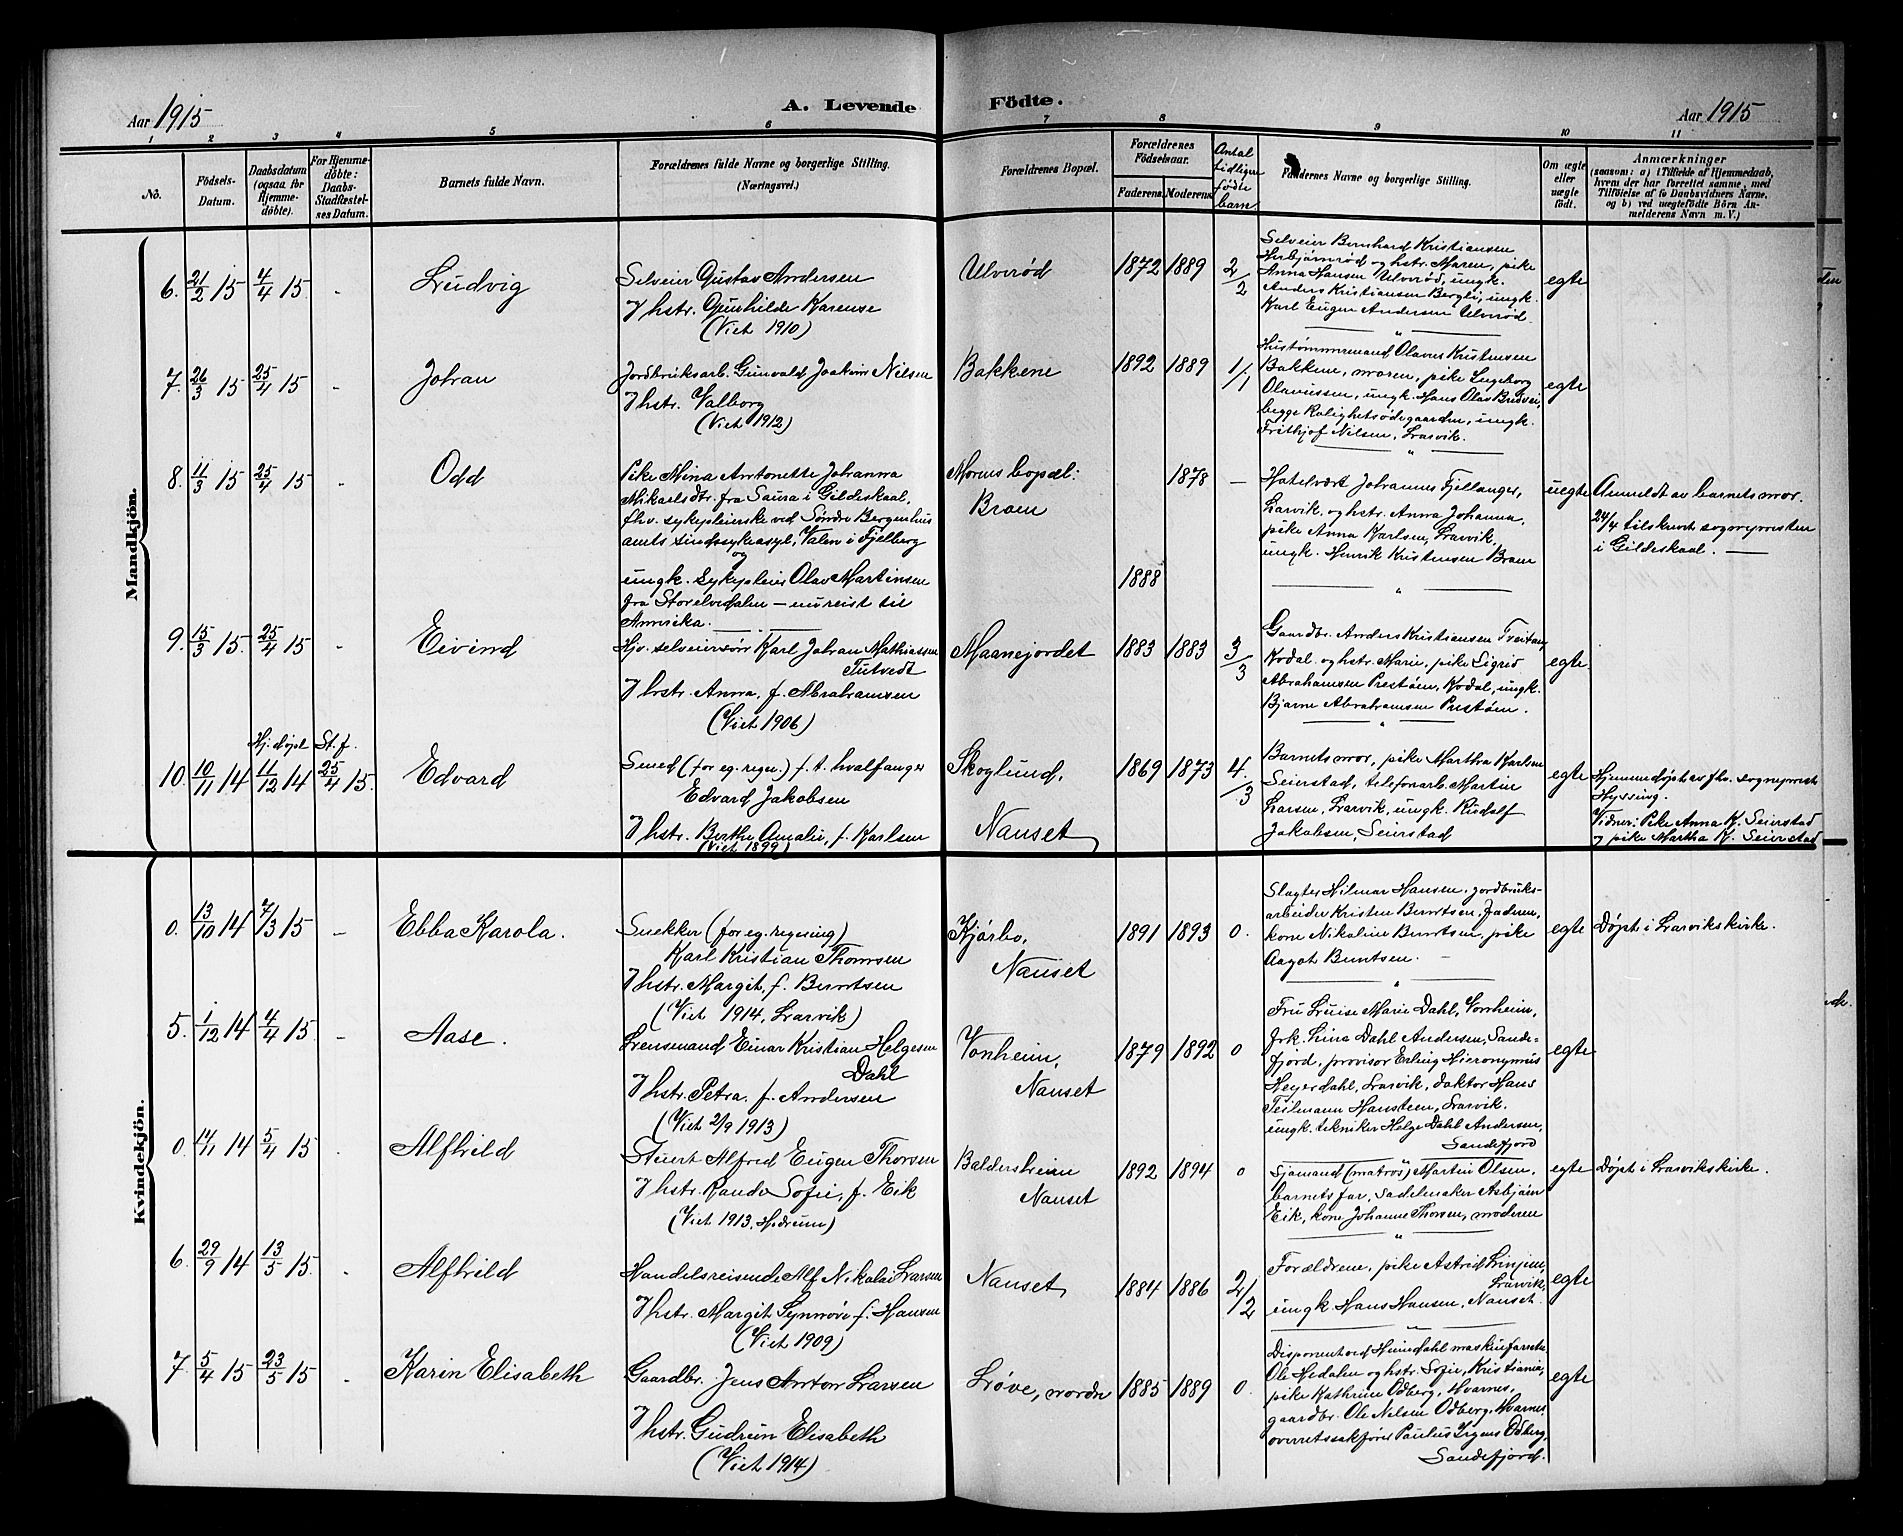 Aar 1915
A. Levende
Födte.
Aar 1915
1 2 3 4 5 6 7 8 9 10 11
No.
Födsels-
Datum.
Daabsdatum
(ogsaa for
Hjemme-
döbte).
For Hjemme-
döbte:
Daabs-
Stadfæstel-
ses Datum.
Barnets fulde Navn.
Forældrenes fulde Navne og borgerlige Stilling.
(Næringsvei.)
Forældrenes Bopæl.
Forældrenes
Födselsaar.
Faderens. Moderens.
Antal
tidligere
fødte
barn
Faddernes Navne og borgerlige Stilling.
Om ægte
eller
uægte
födt.
Anmærkninger
(saasom: a) i Tilfælde af Hjemmedaab,
hvem der har forrettet samme, med
Tilföielse af to Daabsvidners Navne,
og b) ved uægtefödte Börn An-
melderens Navn m. V.)
Mandkjön.
6. 21/2 15 4/4 15. -
Ludvig
Selveier Gustav Andersen
Og hstr. Gunhilde Karense
(Viet 1910)
Ulverød
1872 1889 2/2
Selveier Bernhard Kristiansen
Herbjørnrød og hstr. Maren, pike
Anna Hansen Ulverød, ungk.
Anders Kristiansen Bergli, ungk.
Karl Eugen Andersen Ulverød.
egte
7. 26/3 15 25/4 15 -
Johan
Jordbruksarb. Gunvald Joakim Nilsen
Og hstr. Valborg
(Viet 1912)
Bakkene
1892 1889 1/1
Hustømmermand Olaves Kristensen
Bakkene, moren, pike Ingeborg
Olavessen, ungk. Hans Olav Bredvei,
begge Rolighetsødegaarden, ungk.
Frithjof Nilsen, Larvik.
egte
8. 11/3 15 25/4 15 -
Odd
Pike Mina Antonette Johanna
Mikaelsdtr. fra Saura i Gildeskaal,
fhv. sykepleierske ved Søndre Bergenhus
amts sindssykeasyl, Valen i Fjelberg
og
ungk. sykepleier Olav Martinsen
fra Storelvedalen – nu reist til
Amerika.
Morens bopæl:
Broen
1878 —
1888
Hotelvært Johannes Fjellanger,
Larvik, og hstr. Anna Johanna,
pike Anna Karlsen, Larvik,
ungk. Henrik Kristensen Broen
uegte
Anmeldt av barnets mor.
24/4 tilskrevet sognepresten
i Gildeskaal. —
9. 15/3 15. 25/4 15 -
Eivind
Hjv. selveiersøn Karl Johan Mathiassen
Tutvedt
Og hstr. Anna, f. Abrahamsen
(Viet 1906)
Maanejordet
1883 1883 3/3
Gaardbr. Anders Kristiansen Trevtan,
Kodal, og hstr. Marie, pike Sigrid
Abrahamsen Prestøen, Kodal, ungk.
Bjarne Abrahamsen Prestøen.
egte
10. 10/11 14 Hj. døpt 11/12 14 St. f. 25/4 15.
Edvard
Smed (for eg. regn.) f. t. hvalfanger
Edvard Jakobsen
Og hstr. Berthe Amalie, f. Karlsen
(Viet 1899)
Skoglund,
Nanset
1869 1873 4/3
Barnets mor, pike Martha Karlsen
Seierstad, telefonarb. Martin
Larsen, Larvik, ungk. Rudolf
Jakobsen, Seierstad
egte
Hjemmedøpt av fhv. sogneprest
Hyssing.
Vidner: Pike Anna K. Seierstad
og pike Martha K. Seierstad
Kvindekjön.
0. 13/10 14 7/3 15 -
Ebba Karola.
Snekker (for eg. regning)
Karl Kristian Thomsen
Og hstr. Margit, f. Berntsen
(Viet 1914, Larvik)
Kjærbo,
Nanset
1891 1893 0.
Slagter Hilmar Hansen, jordbruks-
arbeider Kristen Berntsen, faderen,
kone Nikoline Berntsen, pike
Aagot Berntsen.
egte
Døpt i Larviks kirke.
5. 1/12 14 4/4 15. -
Aase.
Lensmand Einar Kristian Helgesen
Dahl
Og hstr. Petra, f. Andersen
(Viet 2/9 1913)
Vonheim,
Nanset
1879 1892 0
Fru Luise Marie Dahl, Vonheim,
frk. Lina Dahl Andersen, Sande-
fjord, provisor Erling Hieronymus
Heyerdahl, Larvik, doktor Hans
Teilmann Hansteen, Larvik.
ungk. tekniker Helge Dahl Andersen,
Sandefjord
egte
0. 14/11 14 5/4 15 .
Alfhild
Stuert Alfred Eugen Thorsen
Og hstr. Randa Sofie, f. Eik
(Viet 1913, Hedrum)
Baldersheim
Nanset
1892 1894 0
Sjømand (matros) Martin Olsen,
barnets far, sadelmaker Asbjørn
Eik, kone Johanne Thorsen, moderen
egte
Døpt i Larviks kirke.
6. 29/9 14 13/5 15. .
Alfhild
Handelsreisende Alf Nikolai Larsen
Og hstr. Margit Synnøve f. Hansen
(Viet 1909)
Nanset
1884 1886 2/2
Forældrene, pike Astrid
Larvik,
ungk. Hans Hansen, Nanset.
egte
7. 5/4 15 23/5 15 .
Karin Elisabeth
Gaardbr. Jens Anton Larsen
Og hstr. Gudrun Elisabeth
(Viet 1914)
Løve, nordre
1885 1889 0.
Disponent ved
Ole Hedalen og hstr. Sofie, Kristiania,
pike Kathrine Odberg, Hvarnes,
gaardbr. Ole Nilsen Odberg, Hvarnes,
overretssakfører Paulus Odberg,
Sandefjord.
egte